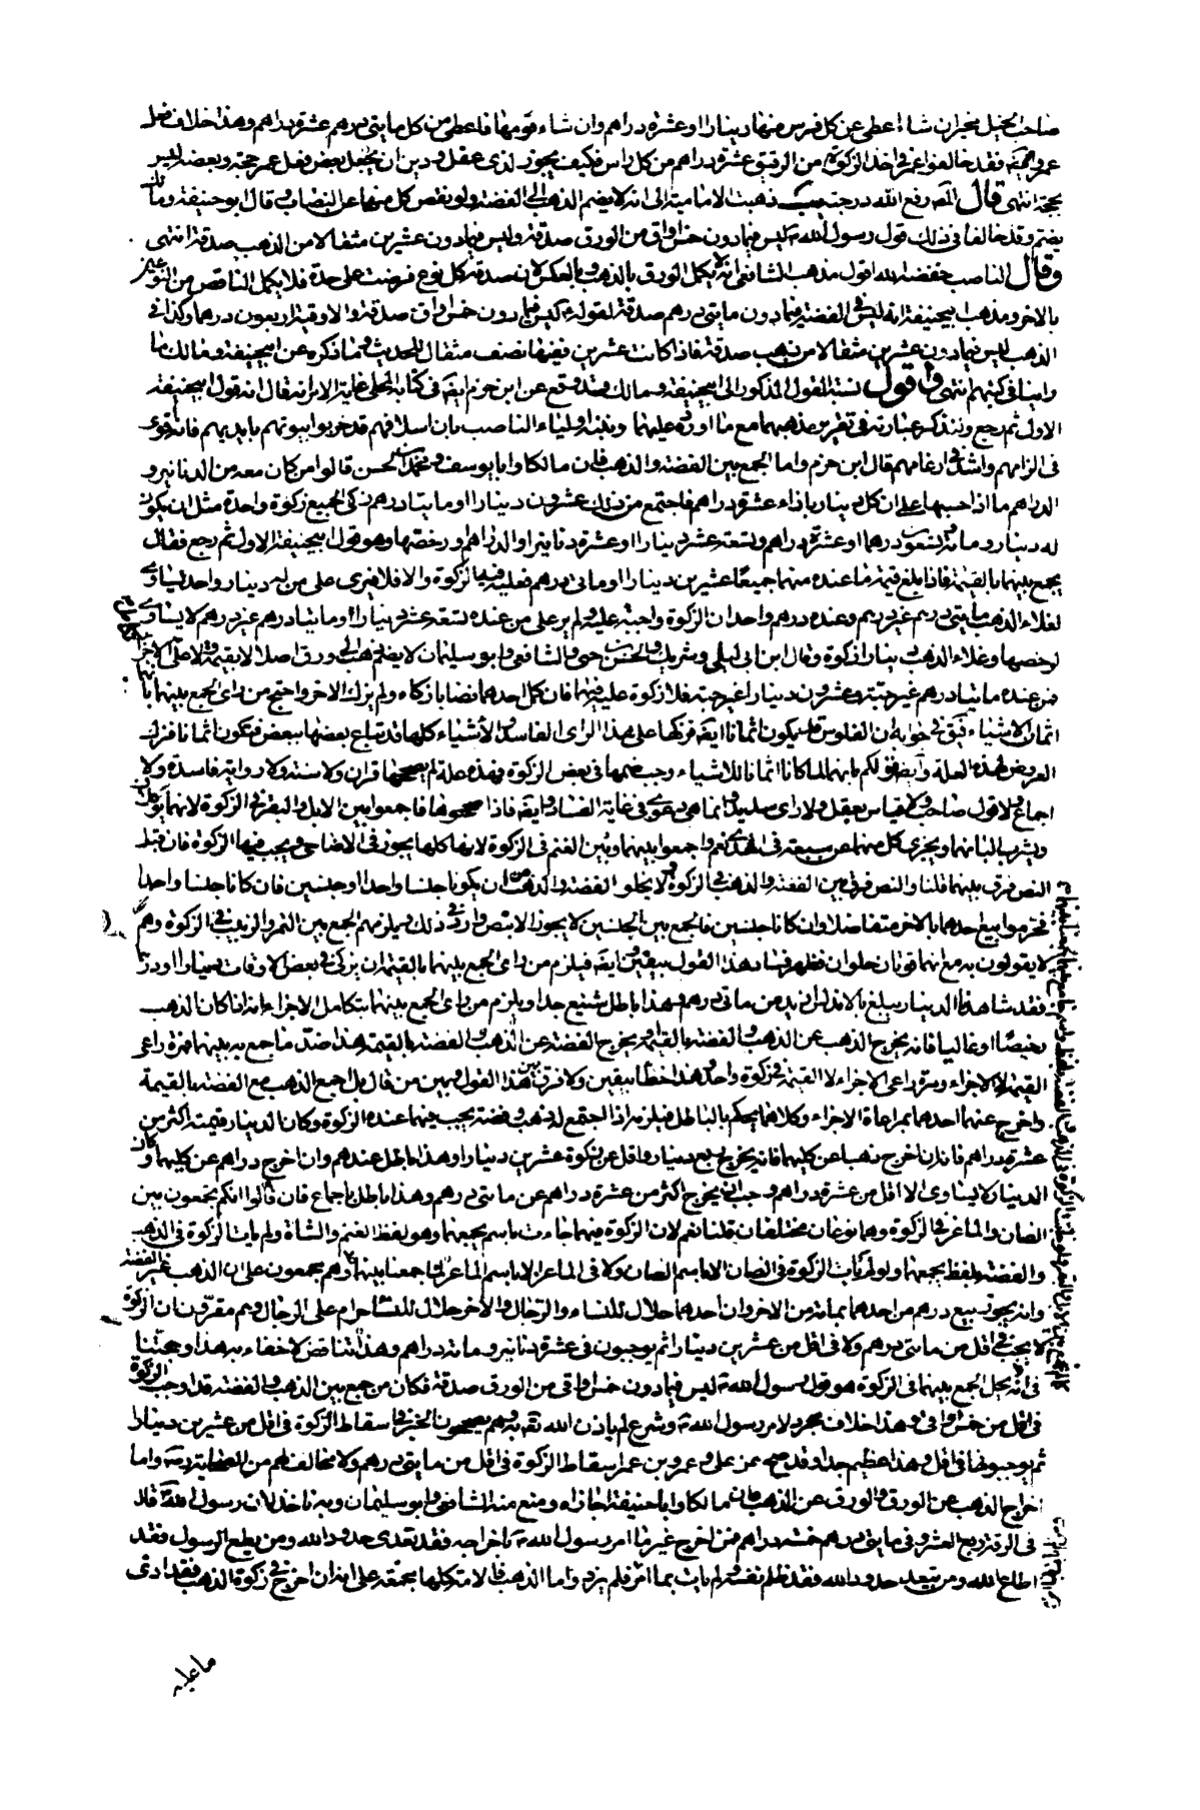 صاحب الخيل مخيران شاء اعطى عن كل فرس منها دينارا او عشرة دراهم وان شاء قومها فاعطى من كل مايتى درهم عشرة دراهم وهذا خلاف فعل
عمر فقد خالفوا عمر فى اخذ الزكوة من الرقيق عشرة دراهم من كل راس فكيف يجوز لذى عقل ودين ان يجعل بعض فعل عمر حجة وبعضه ليس
بحجة انتهى قال المصـ رفع الله درجته ذهبت الامامية الى انه لا يضم الذهب الى الفضة ولو نقص كل منهما عن النصاب وقال ابو حنيفة ومالك
يضم وقد خالفا فى ذلك قول رسول الله ليس فيما دون خمس اواق من الورق صدقة وليس فيما دون عشرين مثقالا من الذهب صدقة انتهى
وقال الناصب خفضه الله اقول مذهب الشافعى انه لا يكمل الورق بالذهب وبالعكس لان صدقة كل نوع فرضت على حدة فلا يكمل الناقص من النوعين
بالاخر ومذهب ابيحنيفة انه ليس فى الفضة فيما دون مايتى درهم صدقة لقوله ليس فيما دون خمس اواق صدقة والاوقية اربعون درهما وكذا فى
الذهب ليس فيما دون عشرين مثقالا من ذهب صدقة فاذا كانت عشرين ففيها نصف مثقال للحديث فما ذكره عن ابيحنيفة ومالك ما
راينا فى كتبهم انتهى واقول نسبة القول المذكور الى ابيحنيفة ومالك قد وقع عن ابن حزم ايضا فى كتابه المحلى غاية الامر انه قال انه قول ابيحنيفة
الاول ثم رجع ولنذكر عبارته فى تقرير مذهبهما مع ما اورده عليهما وننبه اولياء الناصب بان اسلافهم قد خربوا بيوتهم بايديهم فانه اقوى
فى الزامهم واشد فى ارغامهم قال ابن حزم واما الجمع بين الفضة والذهب فان مالكا وابا يوسف ومحمد بن الحسن قالوا من كان معه من الدنانير و
الدراهم ما اذا حسبها على ان كل دينار بازاء عشرة دراهم فاجتمع من ذلك عشرون دينارا او مايتا درهم زكى الجميع زكوة واحدة مثل ان يكون
له دينار ومائة وتسعون درهما او عشرة دراهم وتسعة عشر دينارا او عشرة دنانير او الدراهم ورخصها وهو قول ابيحنيفة الاول ثم رجع فقال
يجمع بينهما بالقيمة فاذا بلغ قيمة ما عنده منهما جميعا عشرين دينارا او مائتى درهم فعليه فيها الزكوة والا فلا فيرى على من له دينار واحد يساوى
لغلاء الذهب مايتى درهم غير درهم وعنده درهم واحد ان الزكوة واجبة عليه ولم ير على من عنده تسعة عشر دينارا او مائتا درهم غير درهم لا يساوى
لرخصها وغلاء الذهب دينارا زكوة وقال ابن ابى ليلى وشريك والحسن بن حى والشافعى وابو سليمان لا يضم ذهب الى ورق اصلا لا بقيمة ولا على الاجزاء
فمن عنده مائتا درهم غير حبة وعشرون دينارا غير حبة فلا زكوة عليه فيهما فان كمل احدهما نصابا زكاه ولم يزك الاخر واحتج من راى الجمع بينهما بانهما
اثمان الاشياء فيق فى جوابه ان الفلوس قد يكون اثمانا ايضا فزكها على هذا الراى الفاسد والاشياء كلها قد تباع بعضها ببعض فتكون اثمانا فزك
العروض لهذه العلة وايضا قولكم بانهما لما كانا اثمانا للاشياء وجب ضمها فى بعض الزكوة فهذه علة لم يصححها قران ولا سنة ولا رواية فاسدة ولا
اجماع ولا قول صاحب ولا قياس يعقل ولا راى سليم وانما هى دعوى فى غاية الفساد وايضا فاذا صححوها فاجمعوا بين الابل والبقر فى الزكوة لانهما يؤكلان
ويشرب البانهما ويجزى كل منهما عن سبعة فى الهدى نعم واجمعوا بينهما وبين الغنم فى الزكوة لانها كلها يجوز فى الاضاحى ويجب فيها الزكوة فان قيل
النص فرق بينهما قلنا والنص فرق بين الفضة والذهب فى الزكوة ولا يخلو الفضة والذهب من ان يكونا جنسا واحدا او جنسين فان كانا جنسا واحدا
فحرموا بيع احدهما بالاخر متفاضلا وان كانا جنسين فالجمع بين الجنسين لا يجوز الا بنص وارد فى ذلك ويلزمهم الجمع بين التمر والزبيب فى الزكوة وهم
لا يقولون به مع انهما قوتان حلوان فظهر فساد هذا القول بيقين ايضا فيلزم من راى الجمع بينهما بالقيمة ان يزكى فى بعض الاوقات دينارا او درهما
فقد شاهدنا الدينار يبلغ بالاندلس ازيد من مائتى درهم وهذا باطل شنيع جدا ويلزم من راى الجمع بينهما بتكامل الاجزاء انه اذا كان الذهب
رخيصا او غاليا فانه يخرج الذهب عن الذهب والفضة بالقيمة ويخرج الفضة عن الذهب والفضة بالقيمة وهذا ضد ما جمع به بينهما فمرة راعى
القيمة لا الاجزاء ومرة راعى الاجزاء لا القيمة فى زكوة واحدة وهذا خطا بيقين ولا فرق بين هذا القول وبين من قال بل جمع الذهب مع الفضة بالقيمة
واخرج عنهما احدهما بمراعاة الاجزاء وكلاهما يحكم بالباطل فيلزم اذا اجتمع له ذهب وفضة يجب فيهما عنده الزكوة وكان الدينار قيمته اكثر من
عشرة دراهم فانه ان اخرج ذهبا عن كليهما فانه يخرج ربع دينار واقل عن زكوة عشرين دينارا وهذا باطل عندهم وان اخرج دراهم عن كليهما وكان
الدينار لا يساوى الا اقل من عشرة دراهم وجب ان يخرج اكثر من عشرة دراهم عن مايتى درهم وهذا باطل باجماع فان قالوا انكم تجمعون بين
الضان والماعز فى الزكوة وهما نوعان مختلفان قلنا نعم لان الزكوة فيهما جاءت باسم يجمعهما وهو لفظ الغنم والشاة ولم يات الزكوة فى الذهب
والفضة بلفظ يجمعهما ولو لم يات الزكوة فى الضان الا باسم الضان ولا فى الماعز الا باسم الماعز لما جمعنا بينهما وهم يجمعون على ان الذهب غير الفضة
وانه يجوز بيع درهم من احدهما بمائة من الاخر وان احدهما حلال للنساء والرجال والاخر حلال للنساء حرام على الرجال وهم مقرون ان الزكوة
لا يجب فى اقل من مايتى درهم ولا فى اقل من عشرين دينارا ثم يوجبون فى عشرة دنانير ومائة دراهم وهذا تناقض لا خفاء به هذا وحجتنا
فى انه لا يحل الجمع بينهما فى الزكوة هو قول رسول الله ليس فيما دون خمس اواقى من الورق صدقة فكان من جمع بين الذهب والفضة قد اوجب الزكوة
فى اقل من خمس اواقى وهذا خلاف مجرد لامر رسول الله وشرع لم ياذن الله تعالى به وهم يصححون الخبر فى اسقاط الزكوة فى اقل من عشرين دينارا
ثم يوجبونها فى اقل وهذا عظيم جدا وقد صح عن على وعمر وبن عمر اسقاط الزكوة فى اقل من مايتى درهم ولا مخالف لهم من الصحابة واما
اخراج الذهب عن الورق والورق عن الذهب فان مالكا وابا حنيفة اجازاه ومنع منه الشافعى وابو سليمان وبه ناخذ لان رسول الله قال
فى الرقة ربع العشر وفى مايتى درهم خمسة دراهم فمن اخرج غير ما امر رسول الله باخراجه فقد تعدى حدود الله ومن يطع الرسول فقد
اطاع الله ومن يتعد حدود الله فقد ظلم نفسه ولم يات بما امر فلم يزك واما الذهب فالامة كلها مجمعة على انه ان اخرج فى زكوة الذهب فقد ادى
ما عليه